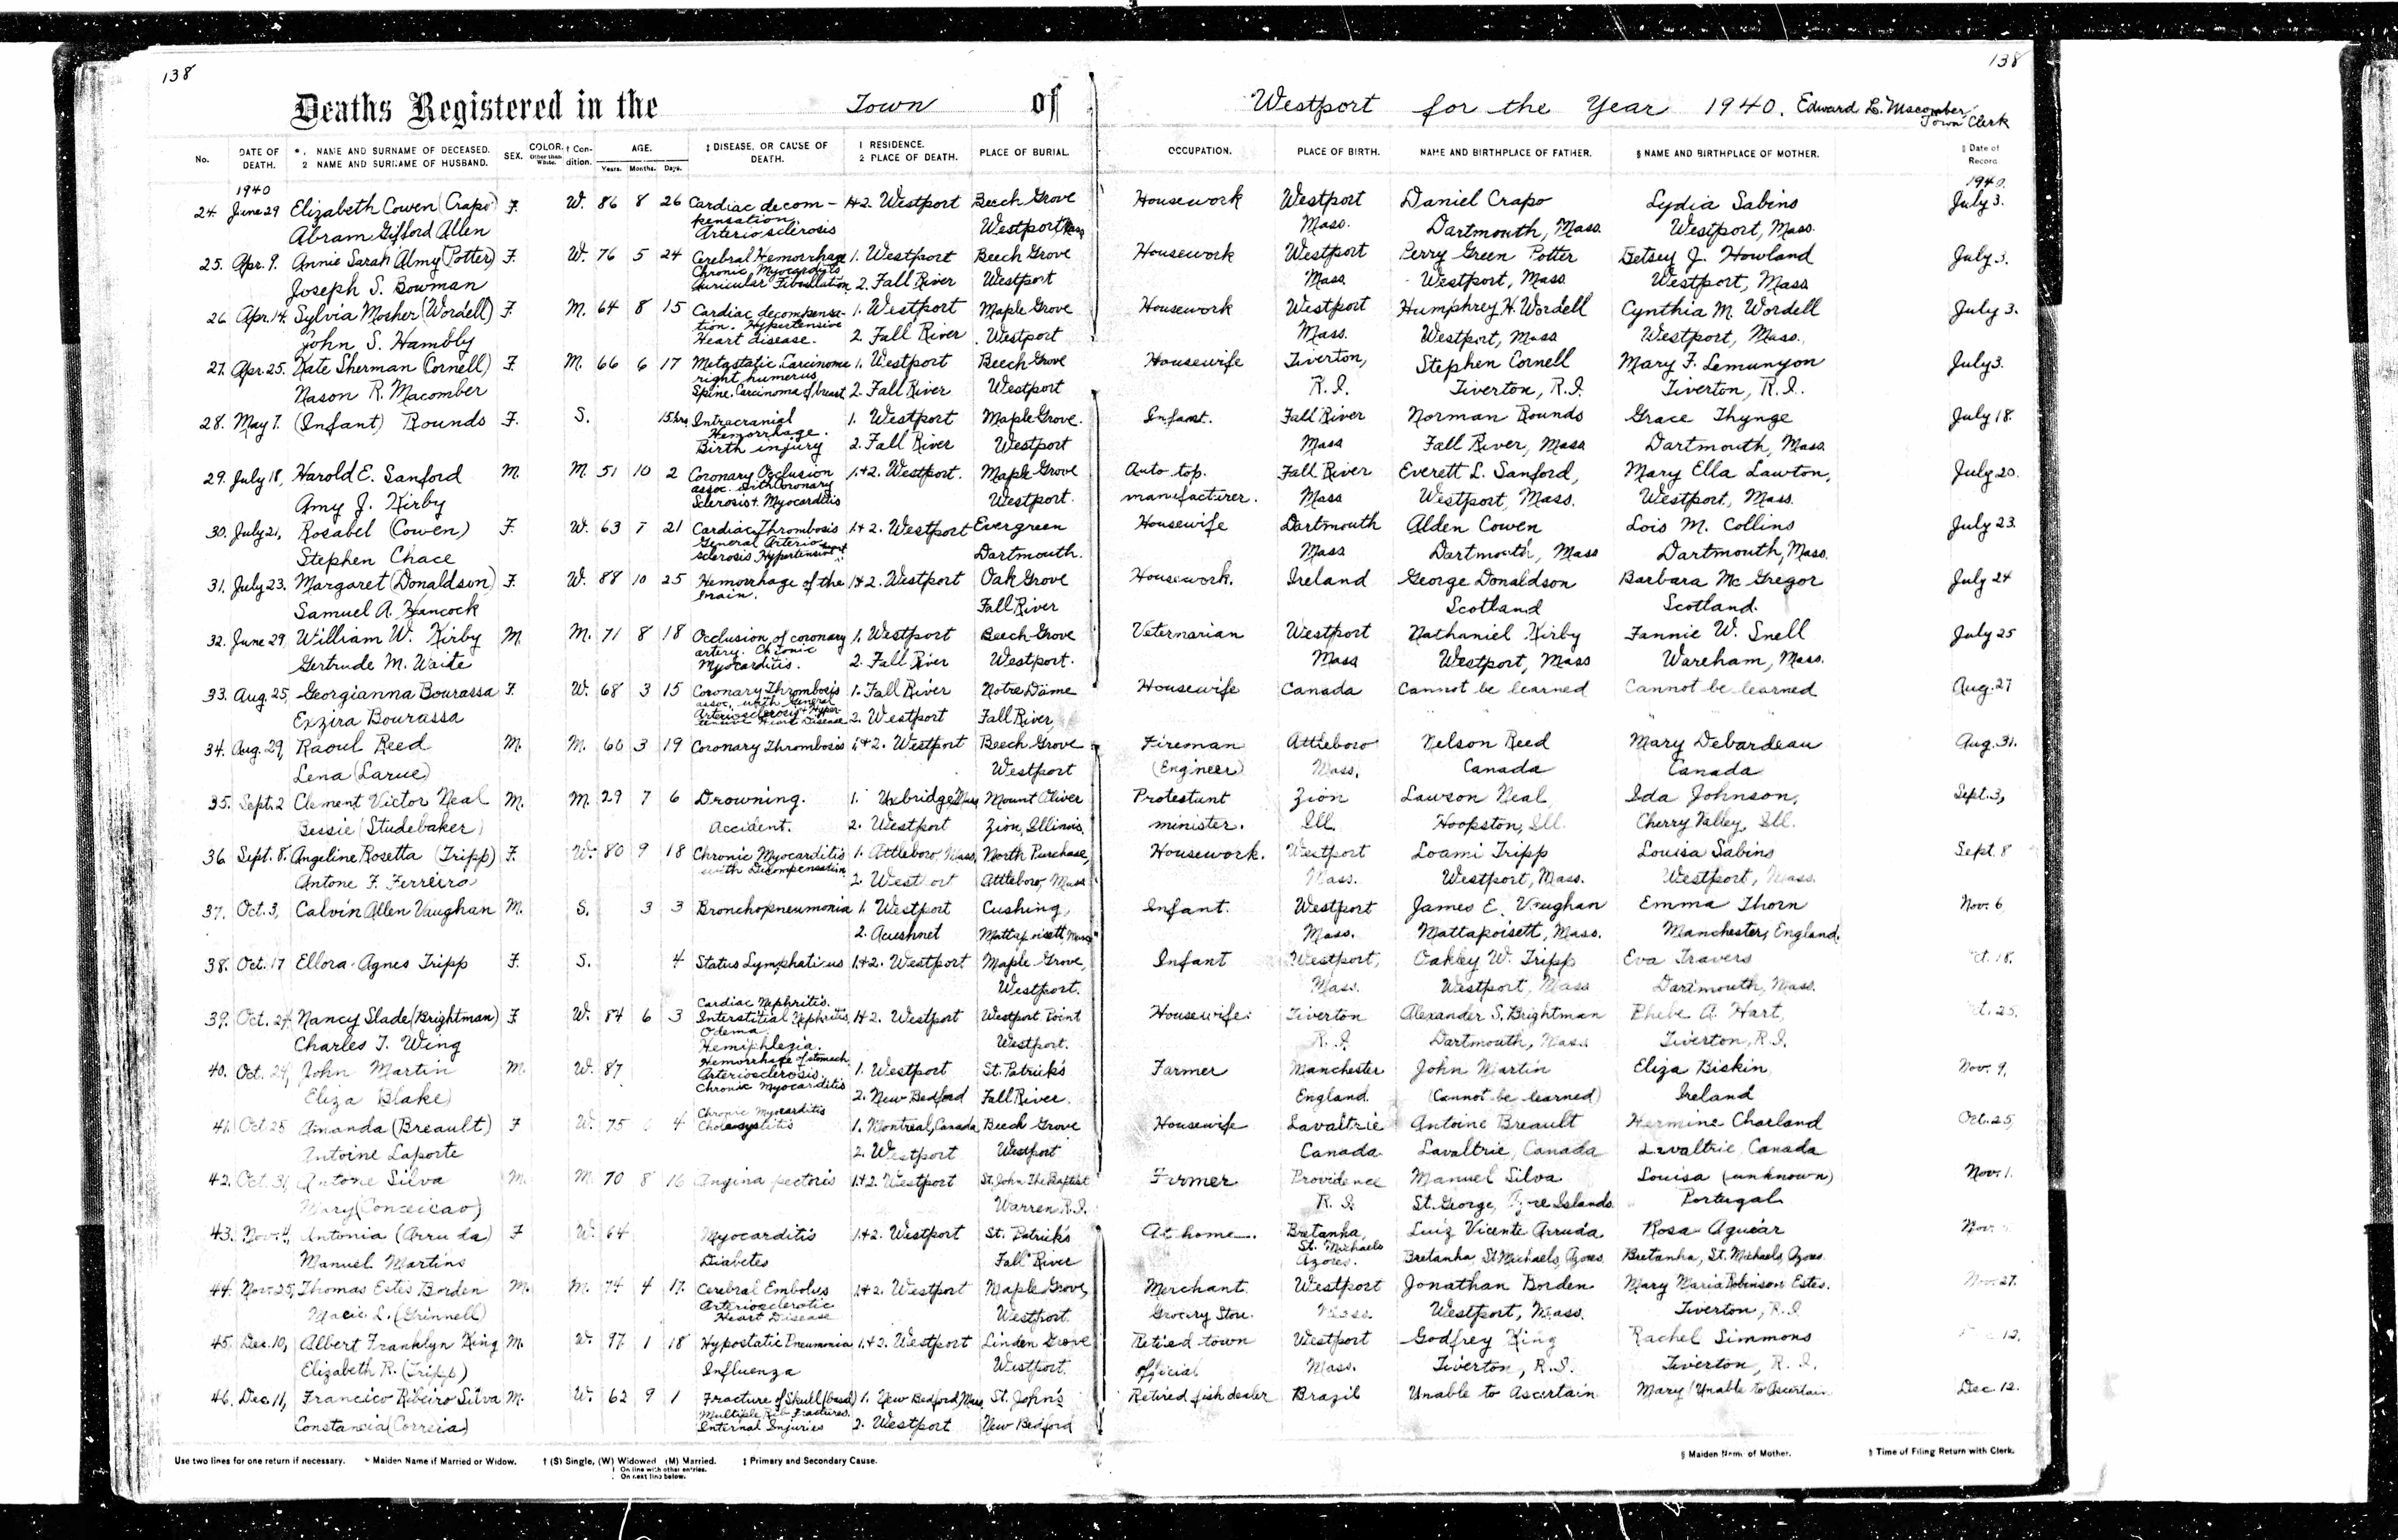 138
138
Deaths Registered in the Town of Westport for the Year 1940. Edward L. Macomber, Town Clerk
No. DATE OF DEATH. *1 NAME AND SURNAME OF DECEASED. 2 NAME AND SURNAME OF HUSBAND. SEX. COLOR. Other than White. † Condition. AGE. Years. Months. Days. ‡ DISEASE, OR CAUSE OF DEATH. 1 RESIDENCE. 2 PLACE OF DEATH. PLACE OF BURIAL. OCCUPATION. PLACE OF BIRTH. NAME AND BIRTHPLACE OF FATHER. § NAME AND BIRTHPLACE OF MOTHER. Date of Record.
1940 1940.
24. June 29 Elizabeth Cowen (Crapo) F. W. 86 8 26 Cardiac decom- 1+2. Westport Beech Grove Housework Westport Daniel Crapo Lydia Sabins July 3.
Abram Gifford Allen pensation. Arteriosclerosis Westport Mass. Mass. Dartmouth, Mass. Westport, Mass.
25. Apr. 9. Annie Sarah Almy (Potter) F. W. 76 5 24 Cerebral Hemorrhage 1. Westport Beech Grove Housework Westport Perry Green Potter Betsey J. Howland July 3.
Joseph S. Bowman Chronic Myocarditis Auricular Fibrillation 2. Fall River Westport Mass. Westport, Mass. Westport, Mass.
26. Apr. 14. Sylvia Mosher (Wordell) F. M. 64 8 15 Cardiac decompensa- 1. Westport Maple Grove Housework Westport Humphrey H. Wordell Cynthia M. Wordell July 3.
John S. Hambly tion. Hypertensive Heart disease. 2. Fall River Westport Mass. Westport, Mass. Westport, Mass.
27. Apr. 25. Kate Sherman (Cornell) F. M. 66 6 17 Metastatic Carcinoma 1. Westport Beech Grove Housewife Tiverton, Stephen Cornell Mary F. Lemunyon July 3.
Nason R. Macomber right humerus Spine. Carcinoma of breast 2. Fall River Westport R.I. Tiverton, R.I. Tiverton, R.I.
28. May 7. (Infant) Rounds F. S. 15 hrs. Intracranial 1. Westport Maple Grove. Infant. Fall River Norman Rounds Grace Thynge July 18.
Hemorrhage. Birth injury 2. Fall River Westport Mass Fall River, Mass. Dartmouth, Mass.
29. July 18, Harold E. Sanford M. M. 51 10 2 Coronary Occlusion 1+2. Westport. Maple Grove Auto top. Fall River Everett L. Sanford, Mary Ella Lawton, July 20.
Amy J. Kirby assoc. with Coronary Sclerosis + Myocarditis Westport. manufacturer. Mass Westport, Mass. Westport, Mass.
30. July 21, Rosabel (Cowen) F. W. 63 7 21 Cardiac Thrombosis 1+2. Westport Evergreen Housewife Dartmouth Alden Cowen Lois M. Collins July 23.
Stephen Chace General Arterio sclerosis Hypertensive Dartmouth. Mass Dartmouth, Mass Dartmouth, Mass.
31. July 23. Margaret (Donaldson) F. W. 88 10 25 Hemorrhage of the 1+2. Westport Oak Grove Housework. Ireland George Donaldson Barbara Mc Gregor July 24
Samuel A. Hancock brain. Fall River Scotland Scotland.
32. June 29, William W. Kirby M. M. 71 8 18 Occlusion of coronary 1. Westport Beech Grove Veternarian Westport Nathaniel Kirby Fannie W. Snell July 25
Gertrude M. Waite artery. Chronic Myocarditis. 2. Fall River Westport. Mass Westport, Mass Wareham, Mass.
33. Aug. 25, Georgianna Bourassa F. W. 68 3 15 Coronary Thrombosis 1. Fall River Notre Dame Housewife Canada Cannot be learned Cannot be learned Aug. 27
Exzira Bourassa assoc. with General Arteriosclerosis + Hypertensive Heart Disease 2. Westport Fall River,
34. Aug. 29, Raoul Reed M. M. 60 3 19 Coronary Thrombosis 1+2. Westport Beech Grove Fireman Attleboro Nelson Reed Mary Debardeau Aug. 31.
Lena (Larue) Westport (Engineer) Mass. Canada Canada
35. Sept. 2 Clement Victor Neal M. M. 29 7 6 Drowning. 1. Uxbridge, Mass Mount Oliver Protestant Zion Lawson Neal Ida Johnson, Sept. 3,
Bessie (Studebaker) Accident. 2. Westport Zion, Illinois. minister. Ill. Hoopston, Ill. Cherry Valley, Ill.
36. Sept. 8. Angeline Rosetta (Tripp) F. W. 80 9 18 Chronic Myocarditis 1. Attleboro, Mass, North Purchase, Housework. Westport Loami Tripp Louisa Sabins Sept. 8
Antone F. Ferreira with Decompensation 2. Westport Attleboro, Mass. Mass. Westport, Mass. Westport, Mass.
37. Oct. 3, Calvin Allen Vaughan M. S. 3 3 Bronchopneumonia 1. Westport Cushing, Infant. Westport James E. Vaughan Emma Thorn Nov. 6
2. Acushnet Mattapoisett, Mass Mass. Mattapoisett, Mass. Manchester, England.
38. Oct. 17 Ellora Agnes Tripp F. S. 4 Status Lymphaticus 1+2. Westport Maple Grove, Infant Westport, Oakley W. Tripp Eva Travers Oct. 18.
Westport. Mass. Westport, Mass Dartmouth, Mass.
39. Oct. 24, Nancy Slade (Brightman) F. W. 84 6 3 Cardiac Nephritis. Interstitial Nephritis, 1+2. Westport Westport Point Housewife. Tiverton Alexander S. Brightman Phebe A. Hart, Oct. 25,
Charles T. Wing Odema. Hemiphlegia. Westport. R.I. Dartmouth, Mass Tiverton, R.I.
40. Oct. 24, John Martin M. W. 87 Hemorrhage of stomach Arteriosclerosis. 1. Westport St. Patrick's Farmer Manchester John Martin Eliza Biskin Nov. 9,
Eliza (Blake) Chronic Myocarditis 2. New Bedford Fall River. England. (Cannot be learned) Ireland
41. Oct. 25 Amanda (Breault) F W. 75 4 Chronic Myocarditis Cholecystitis 1. Montreal, Canada Beech Grove Housewife Lavaltrie Antoine Breault Hermine Charland Oct. 25,
Antoine Laporte 2. Westport Westport Canada Lavaltrie, Canada Lavaltrie, Canada
42. Oct. 31, Antone Silva M. M. 70 8 16 Angina pectoris 1+2. Westport St. John The Baptist Farmer Providence Manuel Silva Louisa (unknown) Nov. 1.
Mary (Conceicao) Warren R.I. R.I. St. George, Islands. Portugal
43. Nov. 4, Antonia (Arruda) F W. 64 Myocarditis 1+2. Westport St. Patrick's At home. Bretanha, Luiz Vicente Arruda Rosa Aguiar Nov.
Manuel Martins Diabetes Fall River St. Michaels Azores. Bretanha, St Michaels, Azores. Bretanha, St. Michaels, Azores.
44. Nov. 25, Thomas Estes Borden M. M. 74 4 17. Cerebral Embolus 1+2. Westport Maple Grove, Merchant. Westport Jonathan Borden Mary Maria Robinson Estes. Nov. 27.
Macie L. (Grinnell) Arteriosclerotic Heart Disease Westport. Grocery Store. Mass. Westport, Mass. Tiverton, R.I.
45. Dec. 10, Albert Franklyn King M. W. 97 1 18 Hypostatic Pneumonia 1.+2. Westport Linden Grove Retired town Westport Godfrey King Rachel Simmons 12.
Elizabeth R. (Tripp) Influenza Westport. official Mass. Tiverton, R.I. Tiverton, R.I.
46. Dec. 11, Francico Ribeiro Silva M. W. 62 9 1 Fracture of Skull (basal) 1. New Bedford, Mass St. John's Retired fish dealer Brazil Unable to Ascertain Mary (Unable to Ascertain Dec. 12.
Constancia (Correia) Multiple Rib Fractures. Internal Injuries 2. Westport New Bedford
Use two lines for one return if necessary. * Maiden Name if Married or Widow. † (S) Single, (W) Widowed (M) Married. ‡ Primary and Secondary Cause. § Maiden Name of Mother. Time of Filing Return with Clerk.
On line with other entries.
On next line below.